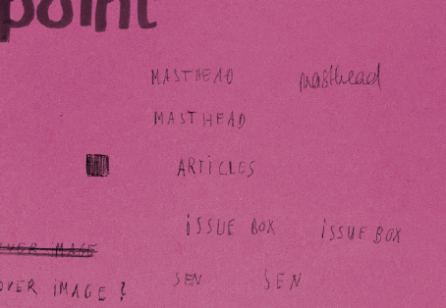 point
MASTHEAD masthead
MASTHEAD
ARTICLES
ISSUE BOX ISSUE BOX
OVER IMAGE
OVER IMAGE?
SEN SEN